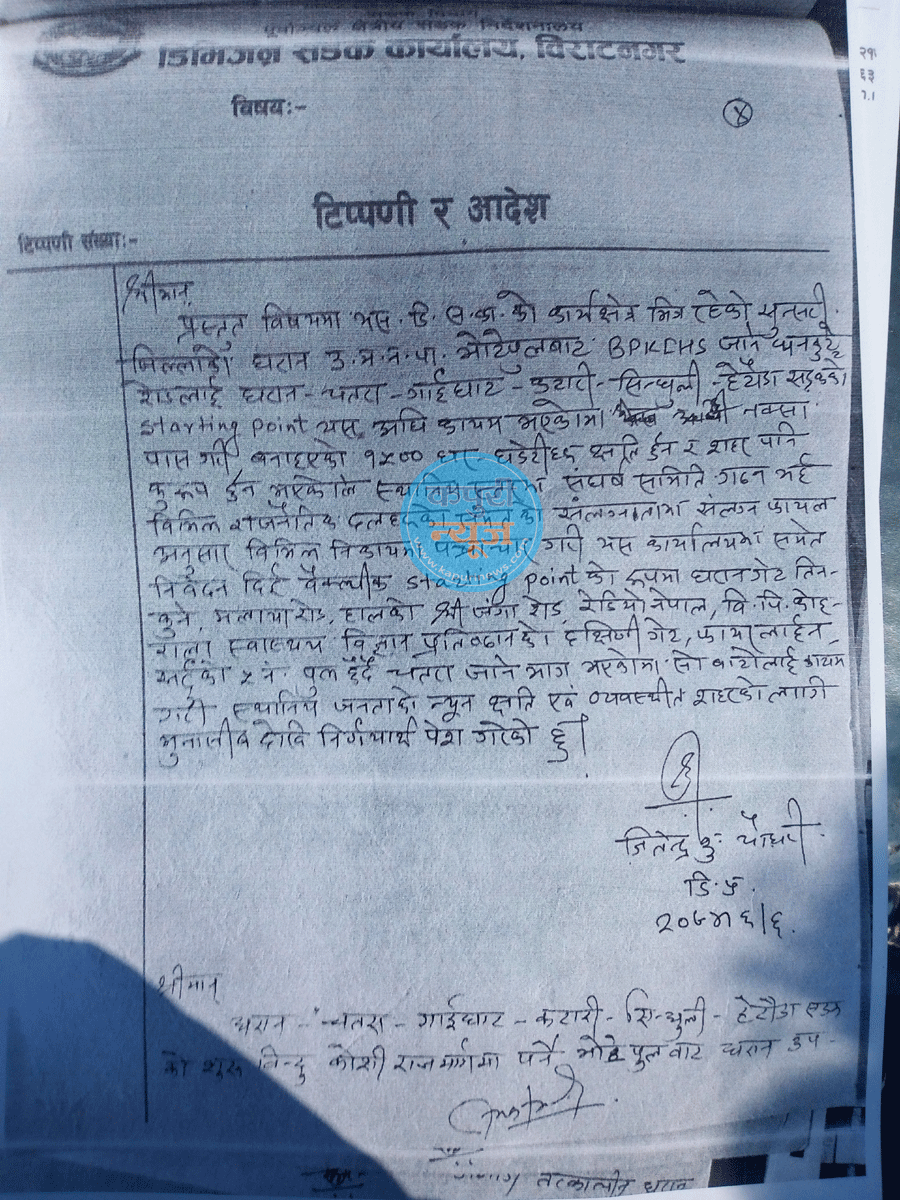 पूर्वाञ्चल क्षेत्रीय सडक निर्देशनालय
डिभिजन सडक कार्यालय, विराटनगर
विषयः-
२१
६३
टिप्पणी र आदेश
टिप्पणी संख्याः-
श्रीमान्
प्रस्तुत विषयमा यस डि. स. का. को कार्यक्षेत्र भित्र रहेको सुनसरी
जिल्लाको धरान उ. म. न. पा. भोटेपुलबाट BPKIHS जाने धनकुटे
रोडलाई धरान - चतरा - गाईघाट - कटारी - सिन्धुली - हेटौडा सडकको
starting point यस अघि कायम भएकोमा नक्सा
पास गरी बनाइएको १५०० घर घडेरीहरु क्षति हुन र शहर पनि
कुरूप हुन भएकोले स्थानिय स्तरमा संघर्ष समिति गठन भई
विभिन्न राजनैतिक दलहरुको संलग्नतामा संलग्न फायल
अनुसार विभिन्न निकायमा पत्राचार गरी यस कार्यालयमा समेत
निवेदन दिई वैकल्पीक starting point को रूपमा धरान गेट तिन-
कुने, मलाया रोड, हालको श्री जंगा रोड, रेडियो नेपाल, वि. पि. कोइ-
राला स्वास्थ्य विज्ञान प्रतिष्ठानको दक्षिणी गेट,
५ नं. पुल हुँदै चतरा जाने मार्ग भएकोमा सो बाटोलाई कायम
गरी स्थानिय जनताको न्यून क्षति एवं व्यवस्थीत शहरको लागी
मुनासीव देखि निर्णयार्थ पेश गरेको छु।
कपुरी
न्यूज
जितेन्द्र कु. चौधरी
डि. ई.
श्रीमान्
धरान - चतरा - गाईघाट - कटारी - सिन्धुली - हेटौडा सडक
को शुरू बिन्दु कोशी राजमार्गमा पर्ने भोटेपुल बाट धरान उप-
तत्कालीन धरान